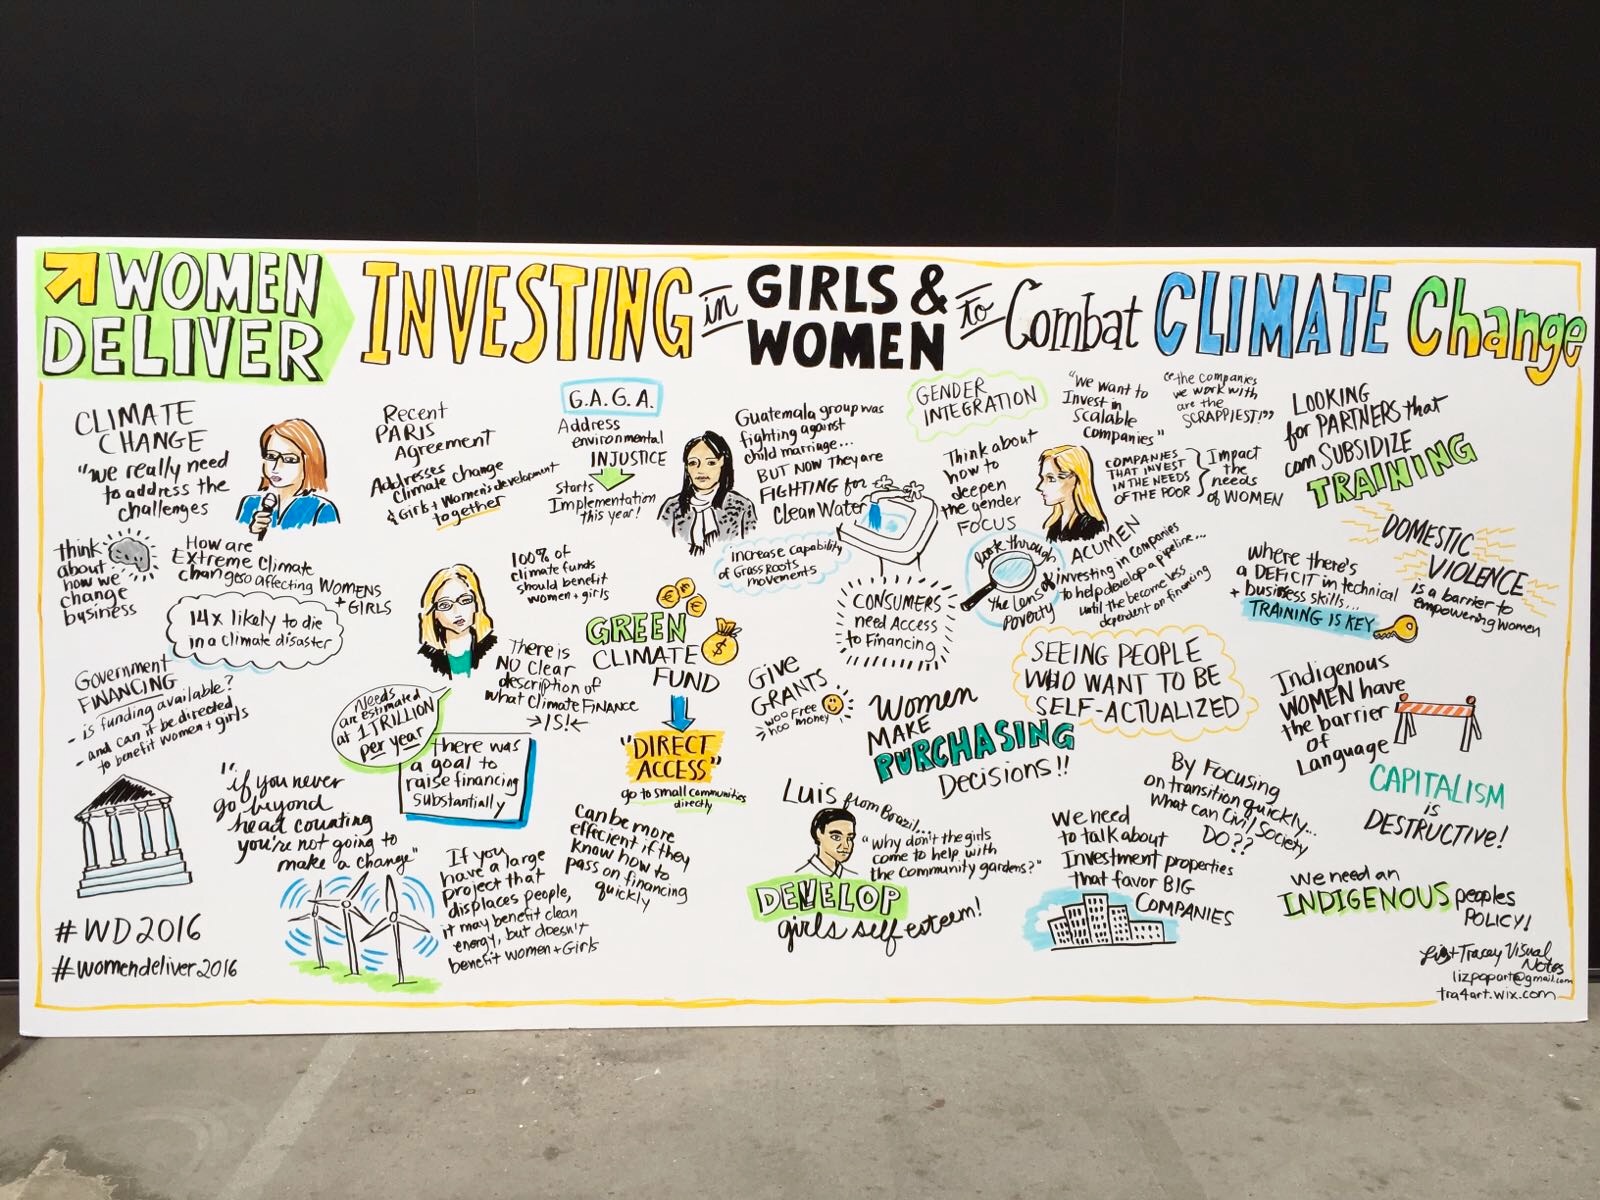 WOMEN
DELIVER
INVESTING in GIRLS &
WOMEN to Combat CLIMATE Change
CLIMATE
CHANGE
"we really need
to address the
challenges
think
about
how we
change
business
How are
EXtreme Climate
changes affecting WOMENS
+ GIRLS
14x likely to die
in a climate disaster
Government
FINANCING
- is funding available?
- and can it be directed
to benefit women + girls
"if you never
go beyond
head counting
you're not going to
make a change"
#WD2016
#womendeliver2016
Recent
PARIS
Agreement
Addresses
climate change
& Girls + Women's development
together
100% of
climate funds
should benefit
women + girls
There is
NO clear
description of
what climate FINANCE
IS!
Needs
are estimated
at 1 TRILLION
per year
there was
a goal to
raise financing
substantially
If you
have a large
project that
displaces people,
it may benefit clean
energy, but doesn't
benefit women + Girls
G.A.G.A.
Address
environmental
INJUSTICE
Starts
Implementation
this year!
GREEN
CLIMATE
FUND
"DIRECT
ACCESS"
go to small communities
directly
can be more
effecient if they
know how to
pass on financing
quickly
Guatemala group was
fighting against
child marriage...
BUT NOW they are
FIGHTING for
Clean Water
increase capability
of Grass Roots
movements
CONSUMERS
need Access
to Financing
GIVE
GRANTS
woo Free
hoo money
Women
MAKE
PURCHASING
Decisions!!
Luis from Brazil...
"Why don't the girls
come to help with
the community gardens?"
DEVELOP
girls self esteem!
GENDER
INTEGRATION
Think about
how to
deepen
the gender
FOCUS
look through
the lens of
Poverty
"We want to
Invest in
Scalable
companies"
"the companies
we work with
are the
SCRAPPIEST!"
COMPANIES
THAT INVEST
IN THE NEEDS
OF THE POOR
Impact
the
needs
of WOMEN
ACUMEN
investing in companies
to help develop a pipeline...
until the become less
dependent on financing
SEEING PEOPLE
WHO WANT TO BE
SELF-ACTUALIZED
By Focusing
on transition quickly...
What can Civil Society
DO??
We need
to talk about
Investment properties
that favor BIG
COMPANIES
LOOKING
for PARTNERS that
can SUBSIDIZE
TRAINING
DOMESTIC
VIOLENCE
is a barrier to
empowering women
where there's
a DEFICIT in technical
+ business skills...
TRAINING IS KEY
Indigenous
WOMEN have
the barrier
of
Language
CAPITALISM
is
DESTRUCTIVE!
We need an
INDIGENOUS peoples
POLICY!
Liz + Tracey Visual
Notes
lizpapart@gmail.com
tra4art.wix.com